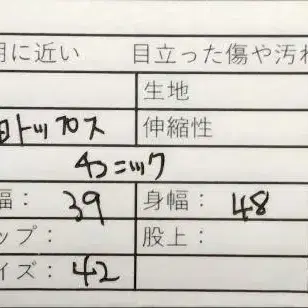 明に近い 目立った傷や汚れ
生地
トップス 伸縮性
チュニック
幅： 39 身幅： 48
ップ： 股上：
イズ： 42